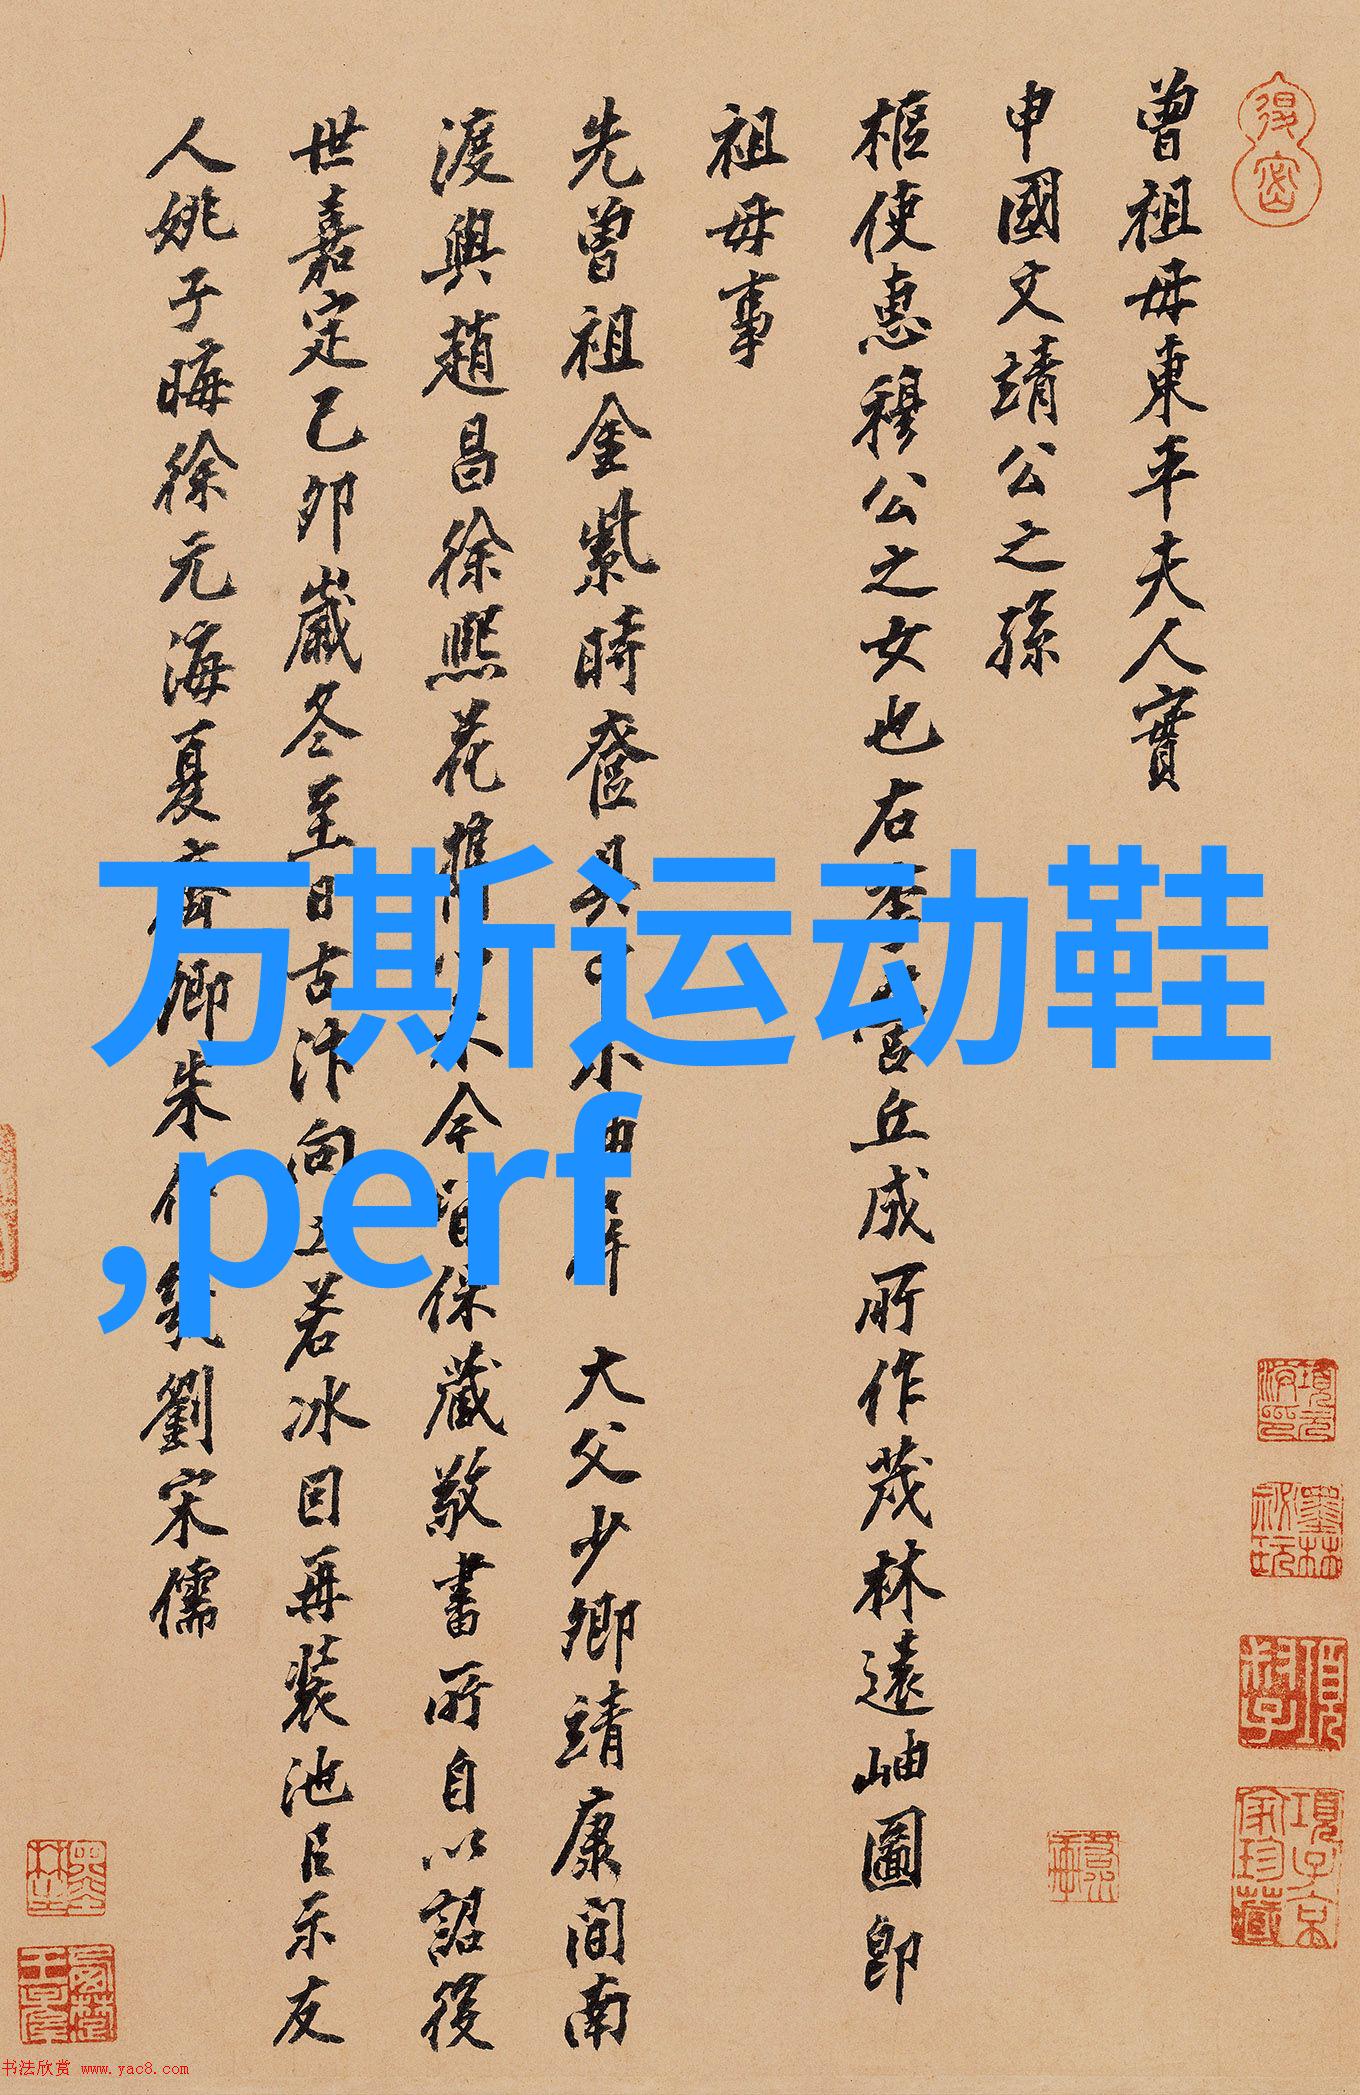 曾祖母東平夫人實
申國文靖公之孫
樞使惠穆公之女也右李營丘咸所作茂林遠岫圖即
祖母事
先曾祖金紫時奩具 小 屏 大父少卿靖康間南
渡與趙昌徐熙花 今皆保藏敬書所自以詔後
世嘉定己卯歲冬至日古汴向 若冰因再裝池呂示友
人姚子晦徐元海夏 卿朱 劉宋儒
万斯运动鞋
,perf
書法欣赏 www.yac8.com